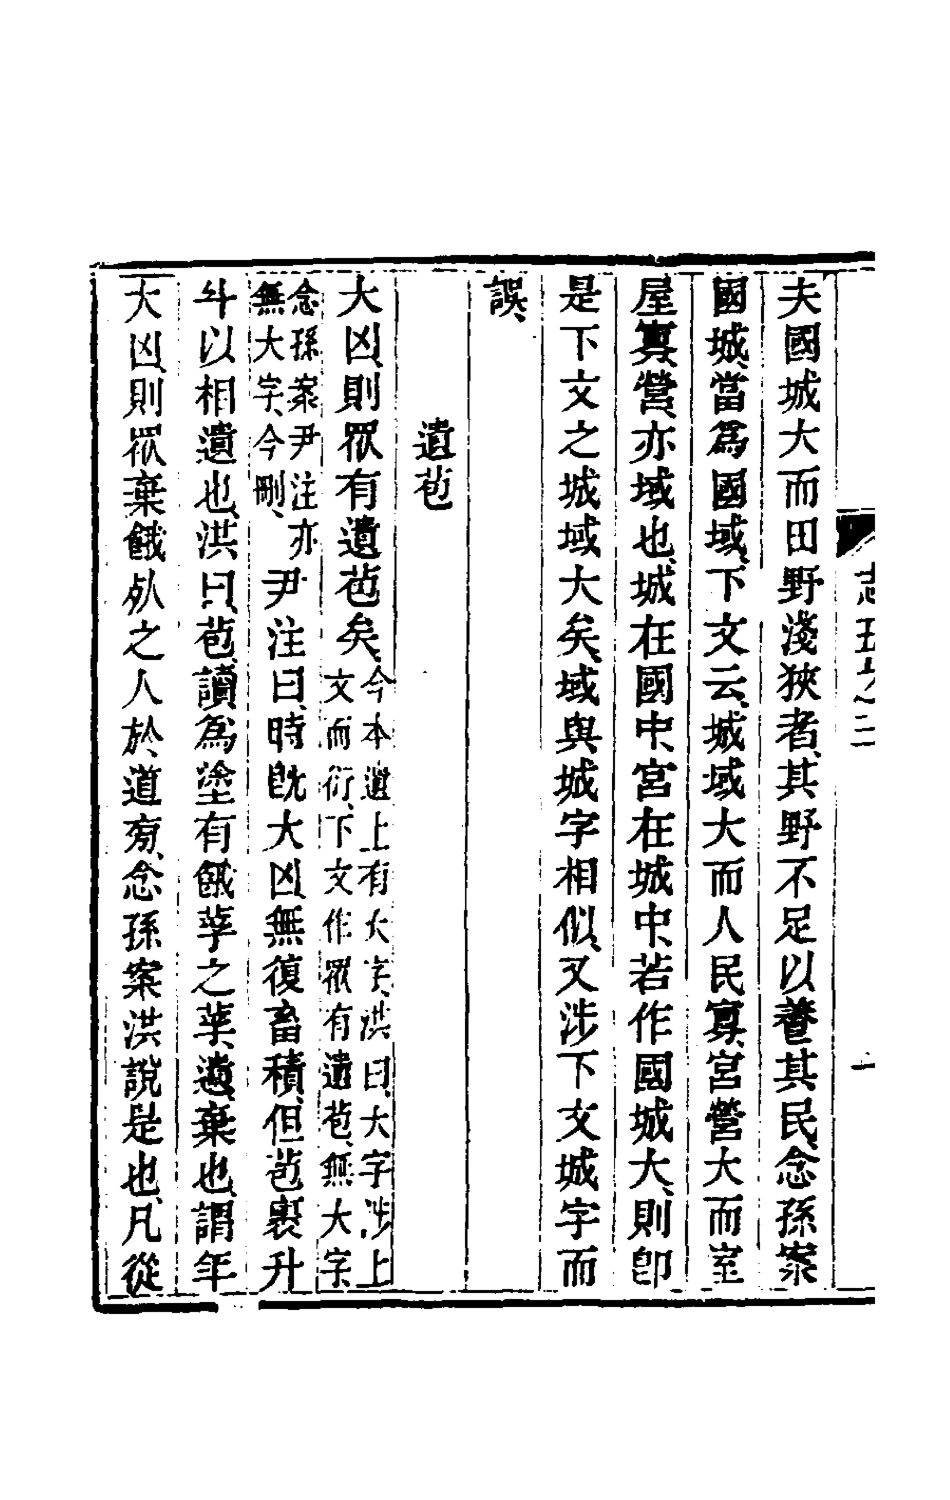 志五之二
一
夫國城大而田野淺狹者、其野不足以養其民、念孫案
國城、當爲國域、下文云、城域大而人民寡、宮營大而室
屋寡、營、亦域也、城在國中、宮在城中、若作國城大、則卽
是下文之城域大矣、域與城字相似、又涉下文城字而
誤、
遺苞
大凶、則眾有遺苞矣、今本遺上有大字、洪曰、大字涉上
文而衍、下文作眾有遺苞、無大字、
念孫案尹注亦
無大字、今刪、
尹注曰、時旣大凶、無復畜積、但苞裹升
斗以相遺也、洪曰、苞、讀爲塗有餓莩之莩、遺、棄也、謂年
大凶、則眾棄餓死之人於道旁、念孫案洪說是也、凡從